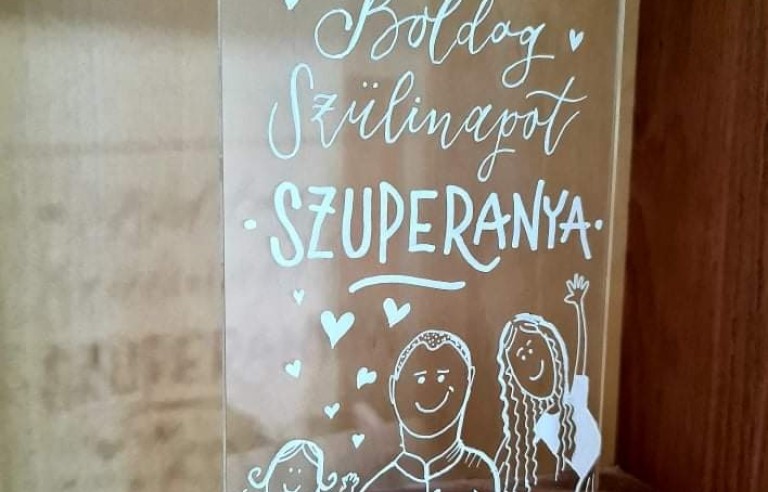 Boldog
Szülinapot
SZUPERANYA